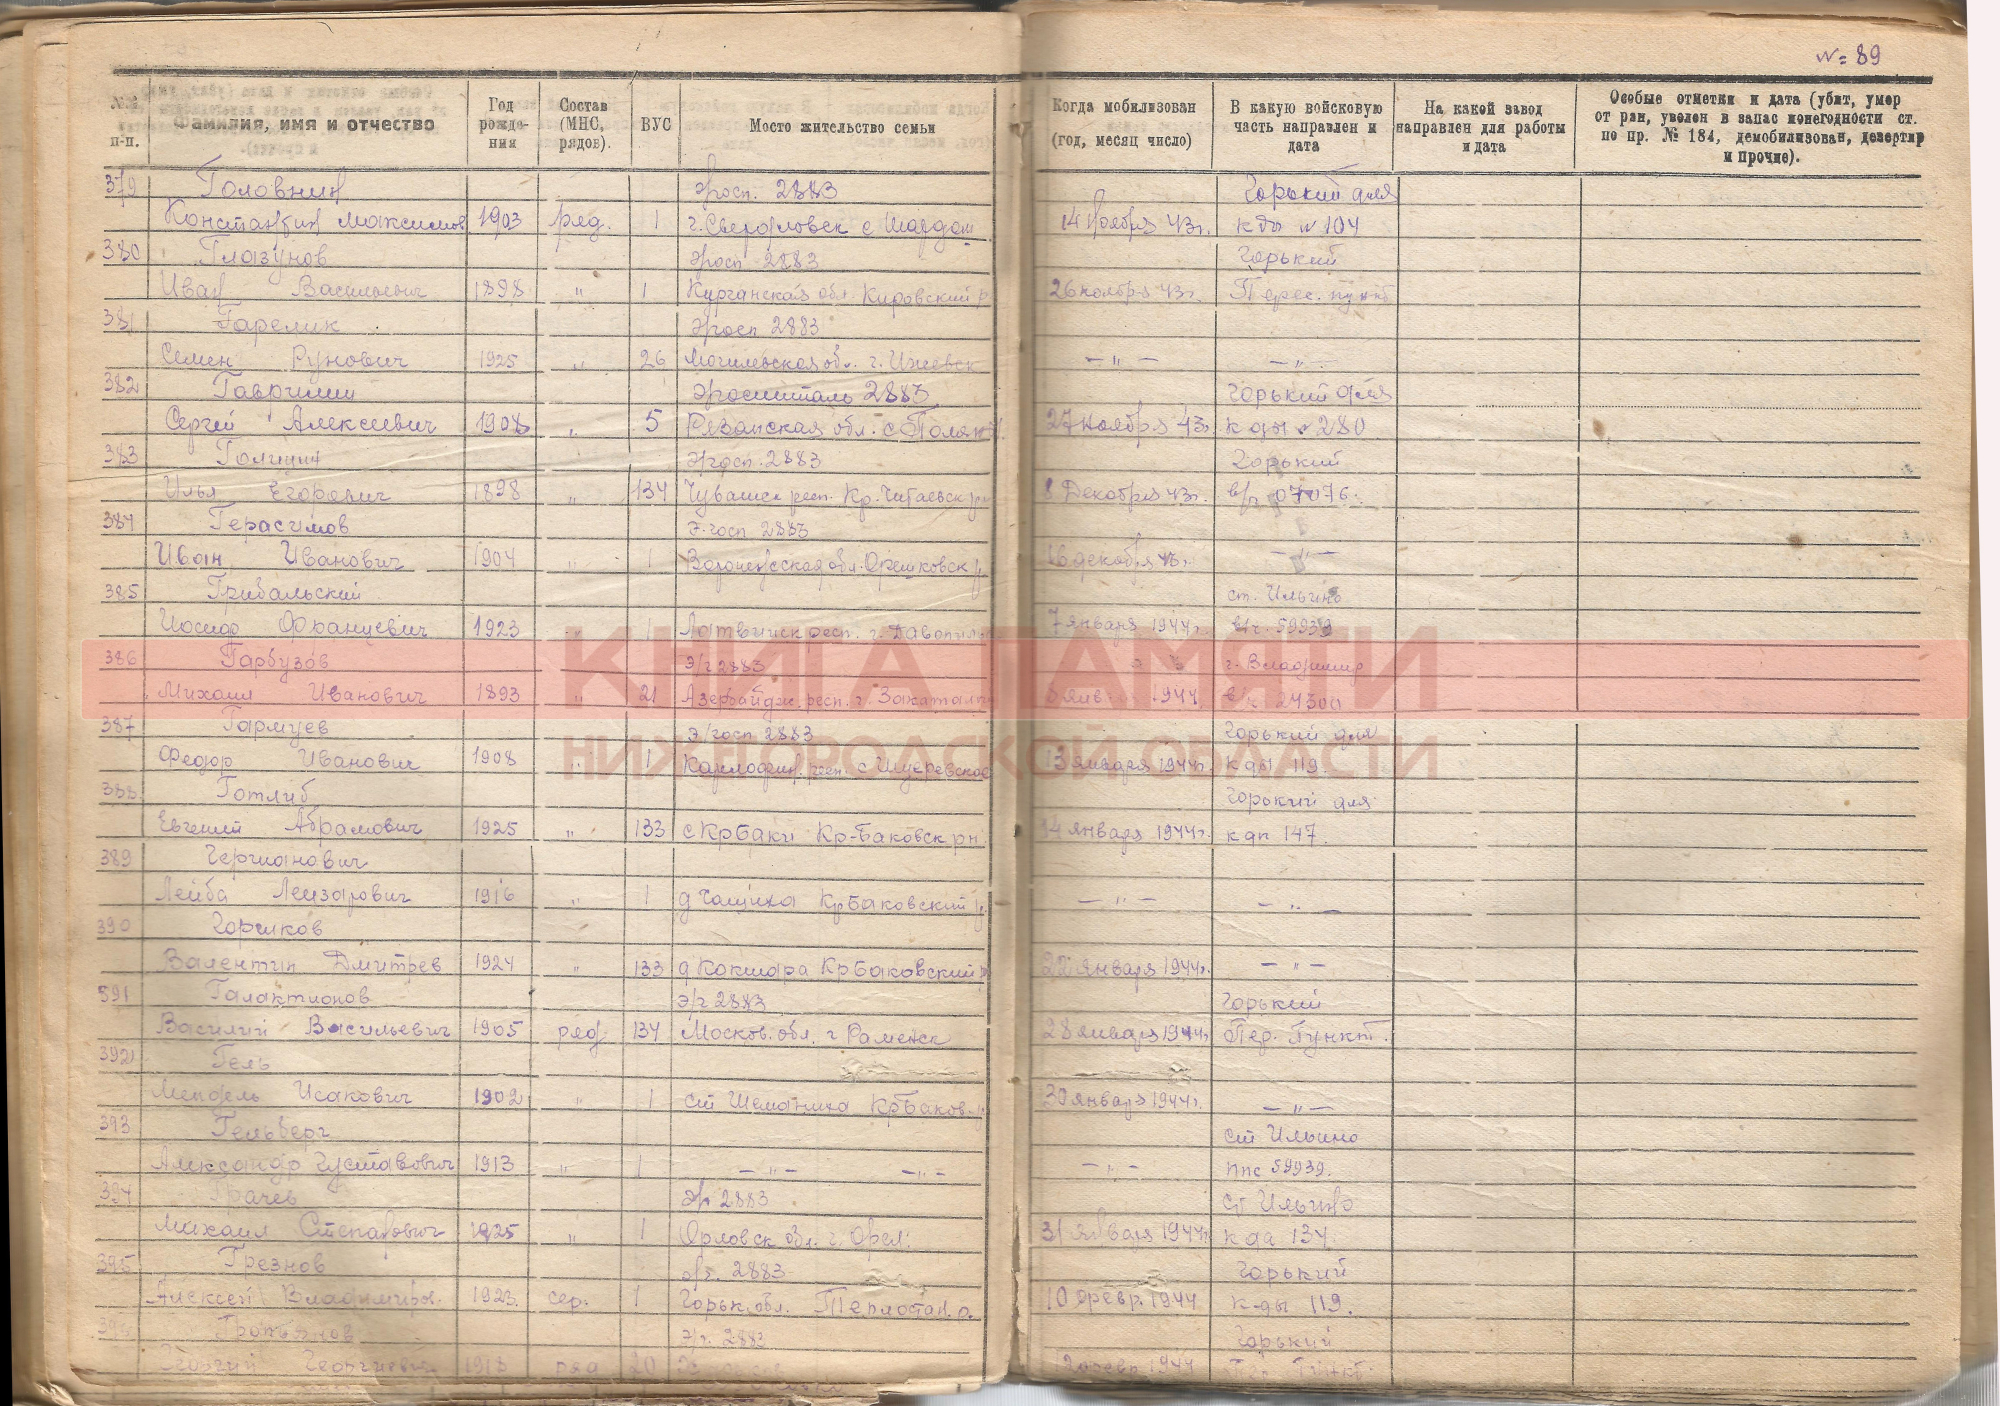 № 89
№№ п-п.
Фамилия, имя и отчество
Год рожде-ния
Состав (МНС, рядов).
ВУС
Место жительство семьи
Когда мобилизован (год, месяц число)
В какую войсковую часть направлен и дата
На какой завод направлен для работы и дата
Особые отметки и дата (убит, умер от ран, уволен в запас понегодности ст. по пр. № 184, демобилизован, дезертир и прочие).
379 Головнин Эгосп. 2883 Горький для
Константин Максимов 1903 ряд. 1 г. Свердловск с 14 ноября 43г. кды № 104
380 Глазунов Эгосп 2883 Горький
Иван Васильевич 1898 " 1 Курганская обл. Кировский р 26 ноября 43г. Перес. пункт
381 Гарелик Эгосп 2883
Семен Рунович 1925 " 26 Могилевская обл. г. Ижевск — " — — " —
382 Гаврилин Эгоспиталь 2883 Горький для
Сергей Алексеевич 1908 " 5 Рязанская обл. с Поляны 27 ноября 43г. кды № 280
383 Голицин Эгосп. 2883 Горький
Илья Егорович 1898 " 134 Чувашск респ. Кр. Читаевск 8 Декабря 43г. в/ч 07076.
384 Герасимов Э.госп 2883
Иван Иванович 1904 " 1 Воронежская обл. 16 декабря 43г. — " —
385 Грибальский ст. Ильино
Иосиф Францевич 1923 " 1 Латвийск респ. г. 7 января 1944г. в/ч. 59939
386 Гарбузов Э/г 2883 г. Владимир
Михаил Иванович 1893 " 21 Азербайдж. респ. г. Закаталы 8 янв 1944 в/ч 24300
387 Гармуев Э/госп 2883 Горький для
Федор Иванович 1908 " 1 13 января 1944г. кды 119.
388 Готлиб Горький для
Евгений Абрамович 1925 " 133 с КрБаки Кр-Баковск рн. 14 января 1944г. кдп 147.
389
Лейба Лейзарович 1916 " 1 КрБаковский р. — " — — " —
390 Горшков
Валентин Дмитрев 1924 " 133 д Кокшара КрБаковский 22 января 1944г. — " —
391 Галактионов Э/г 2883 Горький
Василий Васильевич 1905 ряд. 134 Москов. обл. г Раменск 28 января 1944г. Пер. Пункт.
392 Гель
Мендель Исакович 1902 " 1 ст Шеманиха КрБаков. 30 января 1944г. — " —
393 Гельберг ст Ильино
Александр Густавович 1913 " 1 — " — — " — — " — ппс 59939.
394 Грачев Э/г 2883 Ст Ильино
Михаил Степанович 1925 " 1 Орловск обл. г. Орел. 31 января 1944г. кда 134.
395 Грезнов 2883 Горький
Алексей Владимиров. 1923 сер. 1 Горьк. обл. Теплостан. р. 10 февр. 1944 к-ды 119.
Э/г. 2883 Горький
Георгий Георгиевич 1913 ряд 20 12 февр 1944
КНИГА ПАМЯТИ
НИЖЕГОРОДСКОЙ ОБЛАСТИ